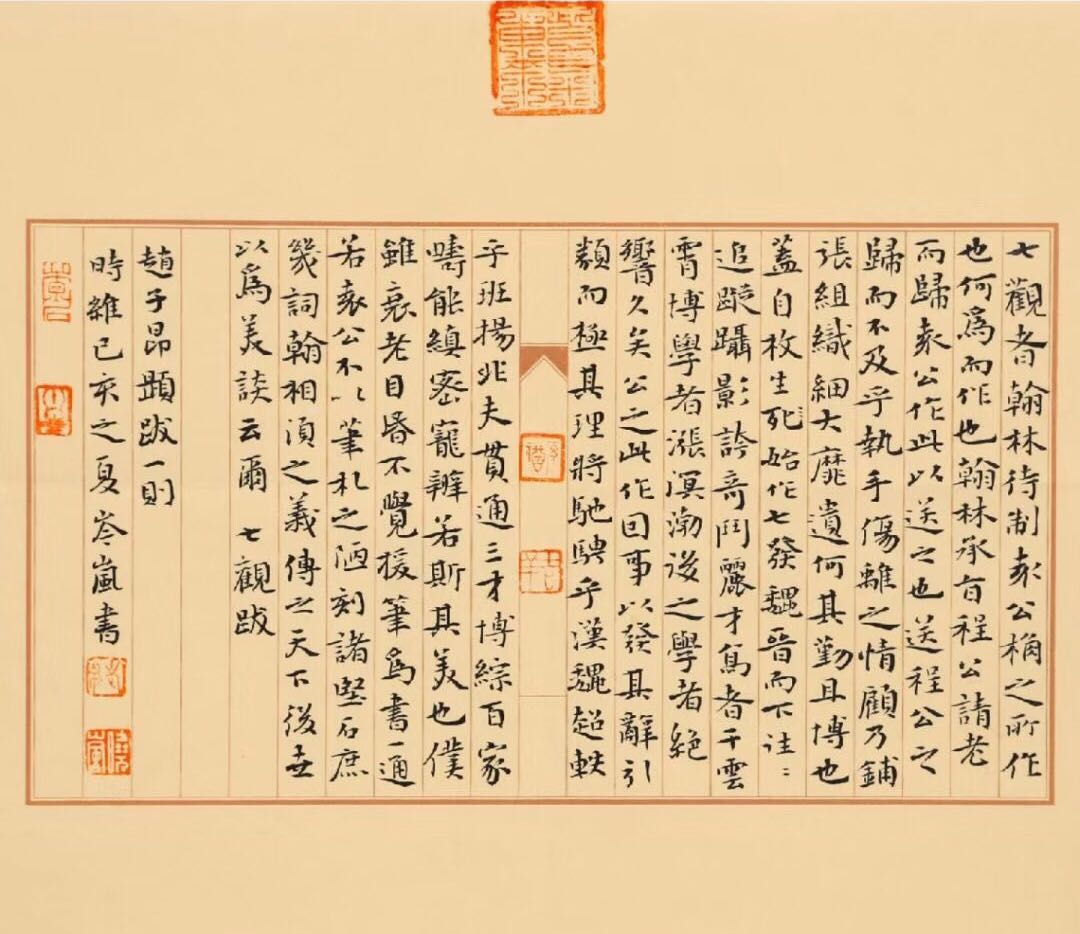 七觀者翰林待制袁公桷之所作
也何為而作也翰林承旨程公請老
而歸袁公作此以送之也送程公之
歸而不及乎執手傷離之情顧乃鋪
張組織細大靡遺何其勤且博也
蓋自枚生死始作七發魏晉而下往〻
追蹤躡影誇奇鬥麗才篤者干雲
霄博學者漲溟渤後之學者絕
響久矣公之此作因事以發其辭引
類而極其理將馳騁乎漢魏超軼
乎班揚非夫貫通三才博綜百家
疇能縝密寵辨若斯其美也僕
雖衰老目昏不覺援筆為書一通
若袁公不以筆札之陋刻諸堅石庶
幾詞翰相須之義傳之天下後世
以為美談云爾 七觀跋
趙子昂題跋一則
時維己亥之夏岑嵐書